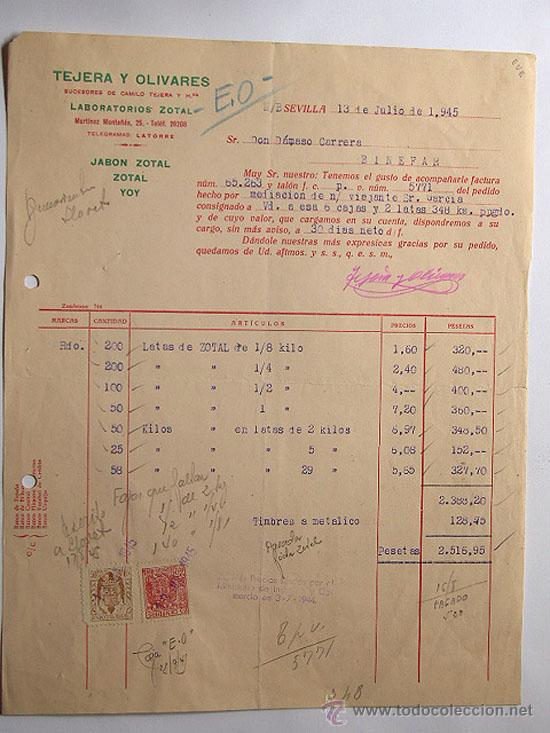 TEJERA Y OLIVARES
SUCESORES DE CAMILO TEJERA Y H.NA
LABORATORIOS ZOTAL
Martínez Montañés, 25. - Teléf. 20208
TELEGRAMAS: LATORRE
JABON ZOTAL
ZOTAL
YOY
-E.O-
SEVILLA 13 de Julio de 1.945
Sr. Don Dámaso Carrera
BINEFAR
Muy Sr. nuestro: Tenemos el gusto de acompañarle factura
núm. 65.263 y talón f. c. p. v. núm. 5771 del pedido
hecho por mediacion de n/ viajante Sr. Garcia
consignado a Vd. a esa 6 cajas y 2 latas 348 ks. ppgdo
y de cuyo valor, que cargamos en su cuenta, dispondremos a
su cargo, sin más aviso, a 30 dias neto d/f.
Dándole nuestras más expresivas gracias por su pedido,
quedamos de Ud. aftmos. y s. s., q. e. s. m.,
Tejera y Olivares
MARCAS CANTIDAD ARTÍCULOS PRECIOS PESETAS
Rdo. 200 Latas de ZOTAL de 1/8 kilo 1,60 320,--
200 " " 1/4 " 2,40 480,--
100 " " 1/2 " 4,-- 400,--
50 " " 1 " 7,20 360,--
50 Kilos " en latas de 2 kilos 6,97 348,50
25 " " " 5 " 6,08 152,--
58 " " " 29 " 5,65 327,70
2.388,20
Timbres a metalico 128,45
Pesetas 2.516,95
Banco de España
O/C
15/8
PAGADO
E p.v.
5771
Caja "E.O"
348
www.todocoleccion.net